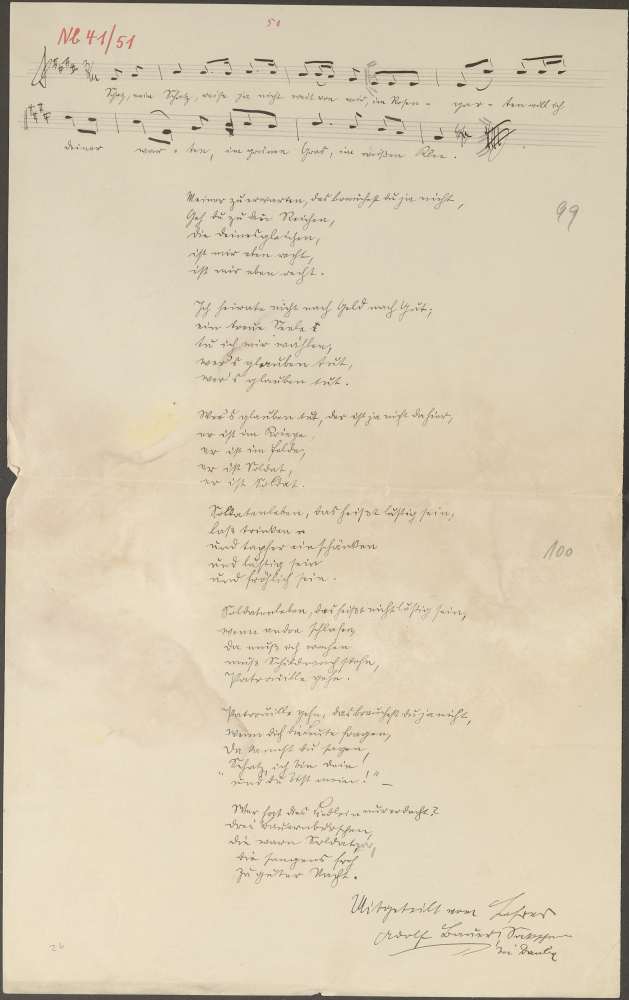 51
Nb 41/51
Schatz, mein Schatz, reise ja nicht weit von mir, im Rosen- gar- ten will ich
deiner war- ten, im grünen Gras, im weißen Klee.
Meiner zu erwarten, das brauchst du ja nicht,
Geh du zu den Reichen,
die deinesgleichen,
ist mir eben recht,
ist mir eben recht.
99
Ich heirate nicht nach Geld nach Gut;
ein treue Seele
tu ich mir wählen,
wer's glauben tut,
wer's glauben tut.
Wer's glauben tut, der ist ja nicht dahier,
er ist im Kriege,
er ist im Felde,
er ist Soldat,
er ist Soldat.
Soldatenleben, das heißt lustig sein,
laß trinken
und tapfer einschänken
und lustig sein
und fröhlich sein.
100
Soldatenleben, das heißt nicht lustig sein,
wenn andre schlafen,
da muß ich wachen
muß Schildwach stehn,
Patrouille gehn.
Patrouille gehn, das brauchst du ja nicht,
wenn dich die Leute fragen,
da mußt du sagen,
"Schatz, ich bin dein!
und du bist mein!" –
Wer hat das Liedlein nur erdacht?
drei Bauernburschen,
die warn Soldaten,
die sangens froh
zu guter Nacht.
Mitgeteilt vom Lehrer
Adolf Bauer,
26